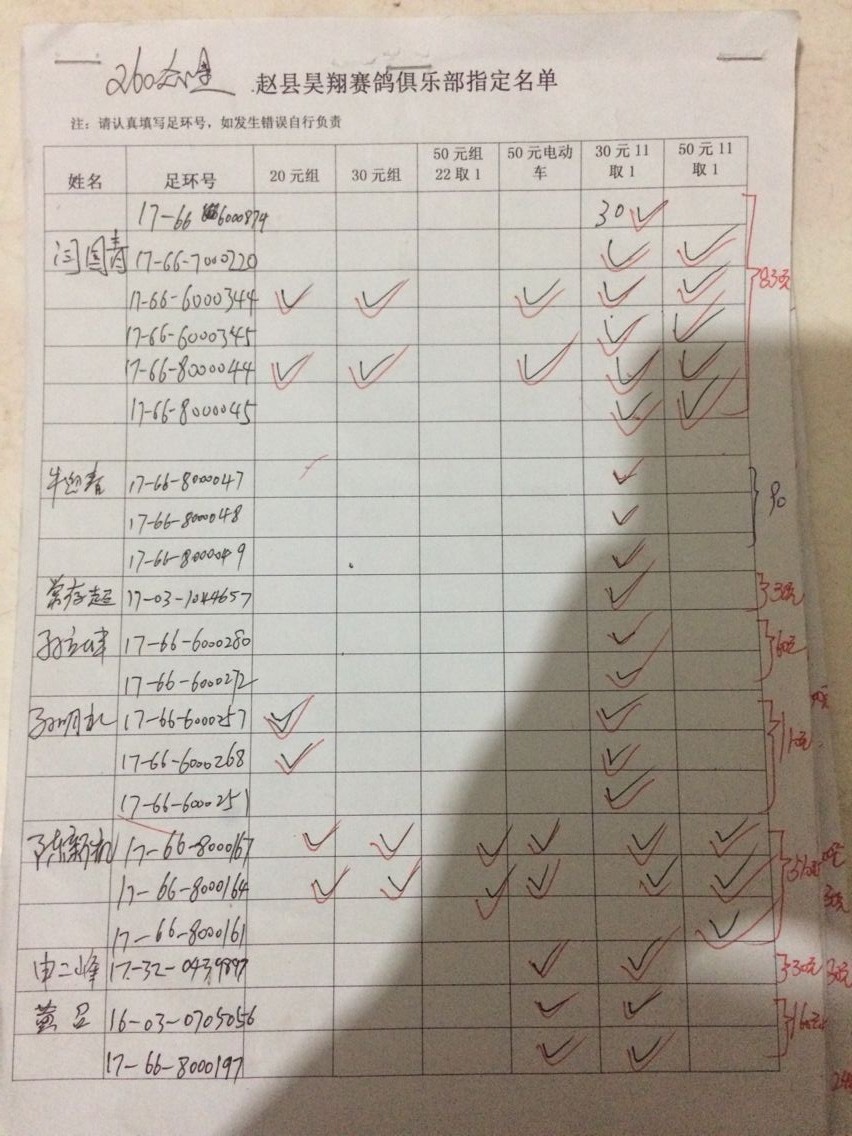 260公里 赵县昊翔赛鸽俱乐部指定名单
注：请认真填写足环号，如发生错误自行负责
姓名 足环号 20元组 30元组 50元组22取1 50元电动车 30元11取1 50元11取1
17-66 6000874 30 ✓
闫国青 17-66-7000220 ✓ ✓
17-66-6000344 ✓ ✓ ✓ ✓ ✓ 830元
17-66-6000345 ✓ ✓
17-66-8000044 ✓ ✓ ✓ ✓ ✓
17-66-8000045 ✓ ✓
牛迎春 17-66-8000047 ✓
17-66-8000048 ✓ 90
17-66-8000049 ✓
常存超 17-03-1044657 ✓ 30元
孙立军 17-66-6000280 ✓ 60元
17-66-6000272 ✓
孙明礼 17-66-6000257 ✓ ✓
17-66-6000268 ✓ ✓
17-66-6000251 ✓
陈新机 17-66-8000167 ✓ ✓ ✓ ✓ ✓ ✓
17-66-8000164 ✓ ✓ ✓ ✓ ✓ ✓ 510元
17-66-8000161 ✓
申二峰 17-32-0439897 ✓ ✓ 30元
黄 16-03-0705056 ✓ ✓ 160元
17-66-8000197 ✓ ✓